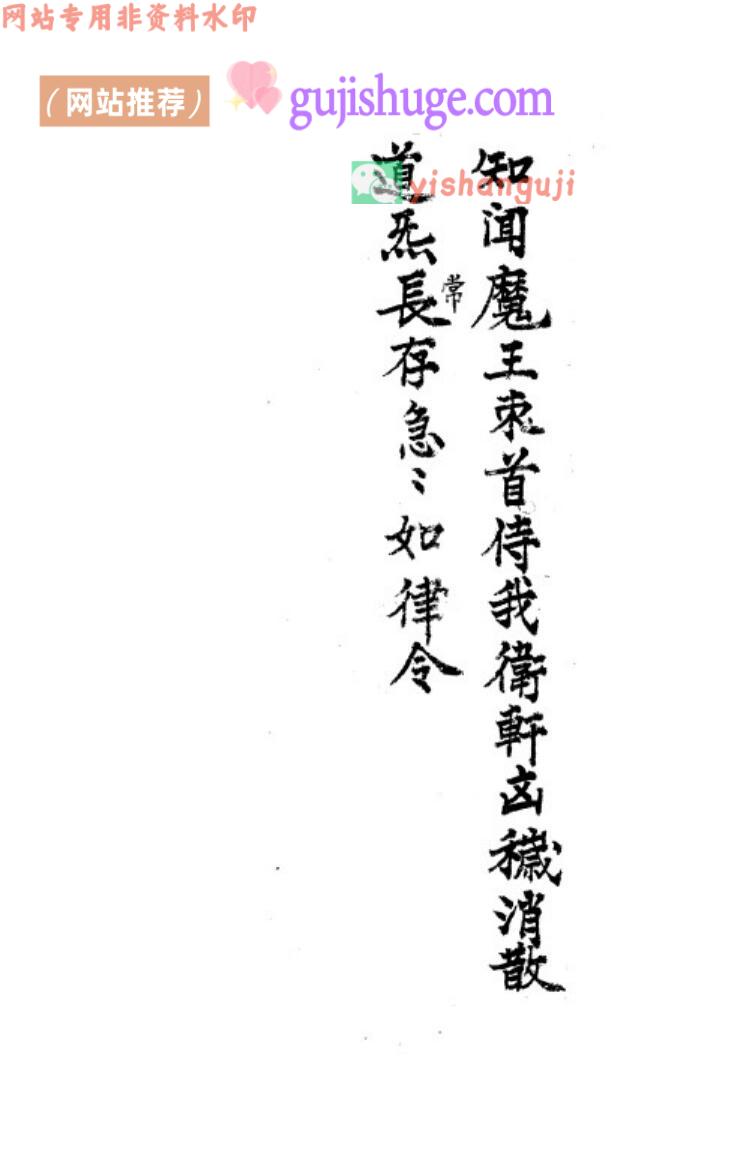 网站专用非资料水印
（网站推荐）
gujishuge.com
yishanguji
知闻魔王束首侍我衛軒凶穢消散
道炁長存急〻如律令
常